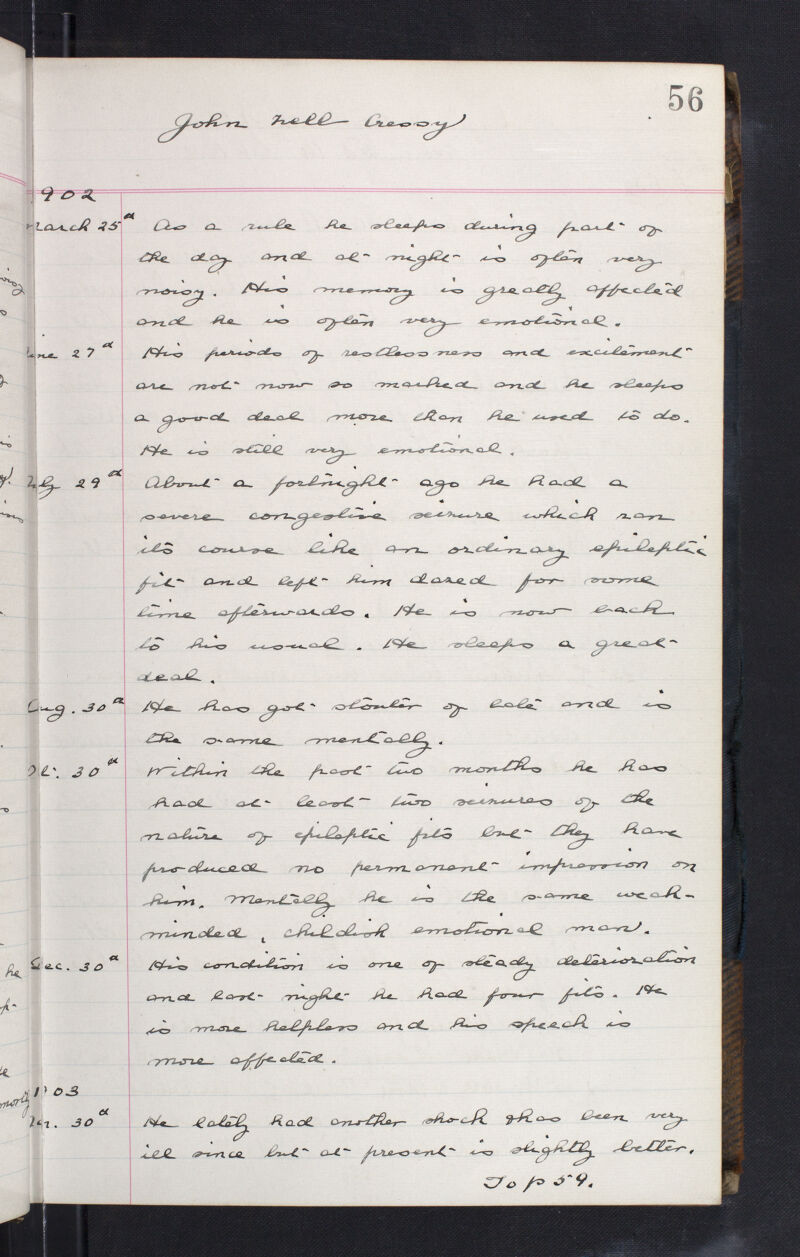 56
John Nell Cressy
1902
March 25th As a rule he sleeps during part of
the day and at night is often very
noisy. His memory is greatly affected
and he is often very emotional.
June 27th His periods of restlessness and excitement
are not now so marked and he sleeps
a good deal more than he used to do.
He is still very emotional.
July 29th About a fortnight ago he had a
severe congestive seizure which ran
its course like an ordinary epileptic
fit and left him dazed for some
time afterwards. He is now back
to his usual. He sleeps a great
deal.
Aug. 30th He has got stouter of late and is
the same mentally.
Oct. 30th Within the past two months he has
had at least two seizures of the
nature of epileptic fits but they have
produced no permanent impression on
him. Mentally he is the same weak-
minded, childish emotional man.
Dec. 30th His condition is one of steady deterioration
and last night he had four fits. He
is more helpless and his speech is
more affected.
1903
30th He lately had another shock & has been very
ill since but at present is slightly better.
To p 59.